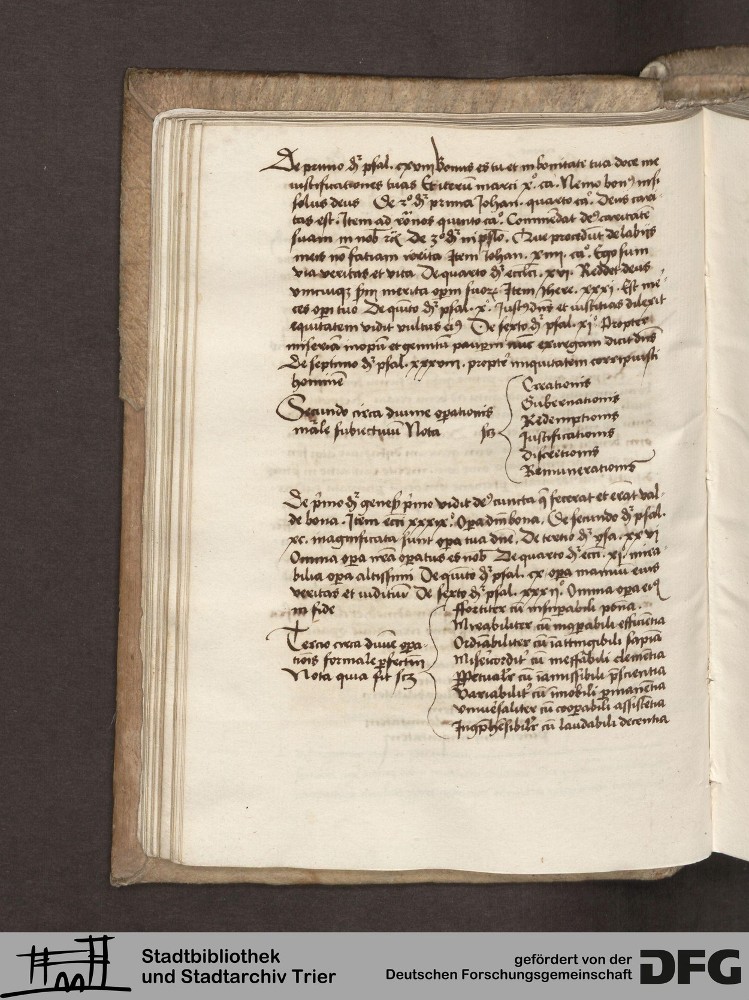 De primo dr psal. cxviij Bonus es tu et in bonitate tua doce me
iustificationes tuas Et iterū marci x°. ca. Nemo bon9 nisi
solus deus De 2° dr prima Johan. quarto ca°. Deus cari
tas est. Item ad ro͞nos quinto ca°. Commēdat de9 caritatē
suam in nob De 3° dr in psl͞o. Que procedūt de labijs
meis nō faciam irrita Item Johan. xiiij. ca°. Ego sum
via veritas et vita De quarto dr eccl͞ci. xvi. Reddet deus
vnicuiqz s͞m merita op͞m suoꝝ. Item Jhere. xxxi. Est mer
ces op͞i tuo De quīto dr psal. x°. Just9 dn͞s et iustitias dilexit
equitatem vidit vultus ei9 De sexto dr psal. xi°. Propter
miseriā inopū et gemitū paup͞m nūc exurgam dicit dn͞s
De septimo dr psal. xxxviij. propter iniquitatem corripuisti
hominē
Secundo circa diuine oꝑationis
māle subiectiuū Nota scz
Creationis
Gubernationis
Redemptionis
Justificationis
Discretionis
Remunerationis
De p͞mo dr genes͞ p͞mo vidit de9 cuncta q͞ fecerat et erāt val
de bona. Item ecci xxxix°. Oꝑa dn͞i bona. De secundo dr psal.
xc. magnificata sunt opa tua dn͞e. De tertio dr ysa. xxvi
Omnia oꝑa n͞ra oꝑatus es nob De quarto dr ecci. xi°. mira
bilia oꝑa altissimi De quīto dr psal. cx oꝑa manuū eius
veritas et iuditiū De sexto dr psal. xxxij°. Omnia oꝑa ei9
in fide
Tercio circa diuīe oꝑa
tiōis formale ꝑfectiuū
Nota quia fit scz
Fortiter cū insuꝑabili pena.
Mirabiliter cū inꝑabili efficiētia
Ordīabiliter cū īattingibili sapīa
Misericordit͛ cū ineffabili clemētia
Ppetualr͛ cū īamissibili p͞scientia
Variabilit͛ cū īmobili ꝑmanētia
Vniuersaliter cū cooꝑabili assistētia
Incōp͞hēsibilr͛ cū laudabili decentia
Stadtbibliothek
und Stadtarchiv Trier
gefördert von der
Deutschen Forschungsgemeinschaft
DFG